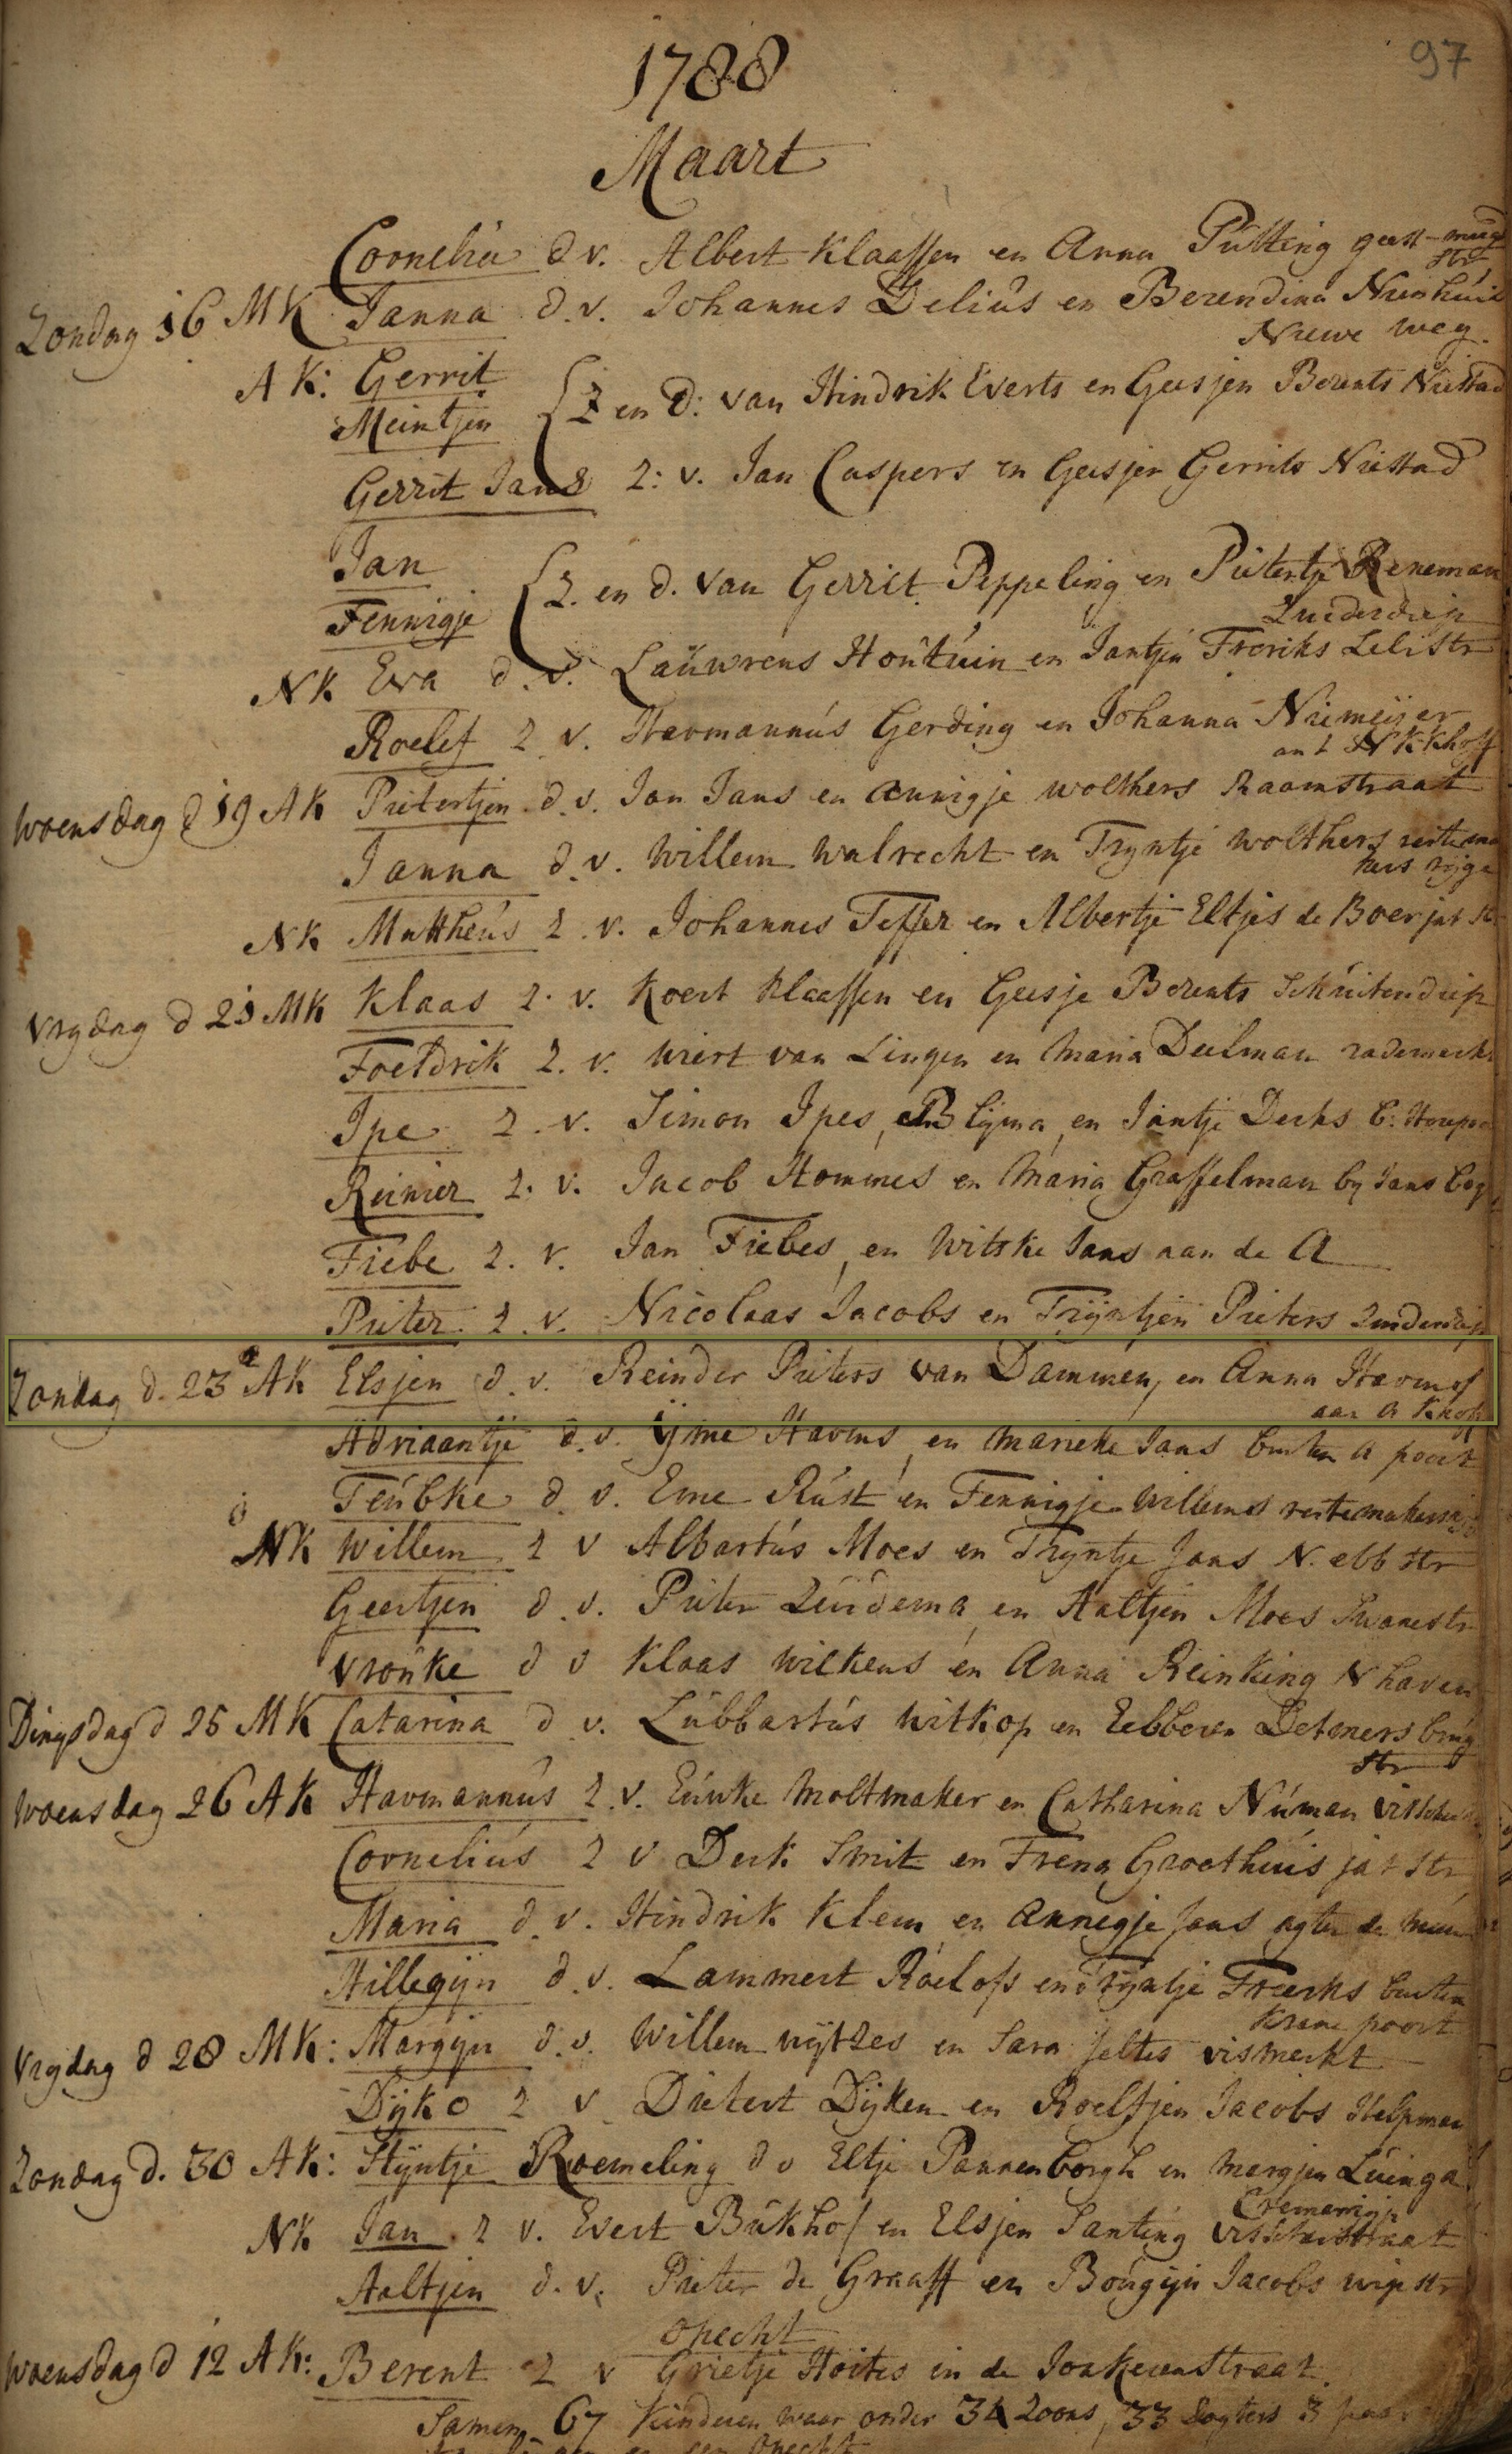 97
1788
Maart
Cornelia d v. Albert Klaassen en Anna Pútting gast-
str
Zondag 16 MK Janna d. v. Johannes Deliús en Berendina Nienhúis
Nieuwe weg.
AK: Gerrit
Meintjen Z en D: van Hindrik Everts en Geesjen Berents Niestad
Gerrit Jans Z: v. Jan Caspers en Geesjen Gerrits Niestad
Jan
Fennigje Z. en d. van Gerrit Peppeling en Pietertje Reneman
Zuiderdiep
NK Eva d. v. Laúwrens Hontúin en Jantjen Freriks Lelistr
Roelef Z v. Harmannús Gerding en Johanna Niemeijer
an t N K Khoff
Woensdag d 19 AK Pietertjen d. v. Jan Jans en Annigje Wolthers Raamstraat
Janna d. v. Willem Walrecht en Tryntje Wolthers
NK Mattheús Z. v. Johannes Teffer en Albertje Eltjes de Boer jat st
Vrydag d 21 MK Klaas Z. v. Koert Klaassen en Geesje Berents Schúitendiep
Foeldrik Z. v. Wiert van Lingen en Maria Deelman
Ipe Z. v. Simon Ipes, Blijma, en Jantje Derks
Reinier Z. v. Jacob Hommes en Maria Graffelman by Jans
Fiebe Z. v. Jan Fiebes, en Witske Jans aan de A
Pieter Z. v. Nicolaas Jacobs en Tryntjen Pieters Zuiderdiep
Zondag d. 23 AK Elsjen d. v. Reinder Pieters van Dammen, en Anna Harms
aan A Khof
Adriaantje d. v. ijme Harms, en Marieke Jans buiten A poort
Teúbke d. v. Eme Rúst en Fennigje Willems
NK Willem Z v Albartús Moes en Tryntje Jans N. ebb str
Geertjen d. v. Pieter Zúidema, en Aaltjen Moes Swanestr
Vroúke d v Klaas Wilkens en Anna Reinking N haven
Dingsdag d 25 MK Catarina d v. Lúbbartús Witkop en Eebberen Detmers brúg
str
Woensdag 26 AK Harmannús Z. v. Eúwke Moltmaker en Catharina Núman
Cornelius Z v Derk Smit en Frena Groothuis jat str
Maria d. v. Hindrik Klem en Annegje Jans agter de
Hillegijn d. v. Lammert Roelofs en Tryntje Freerks buiten
Krane poort
Vrydag d 28 MK: Margijn d. v. Willem wijtzes en Sara Jeltes vismerkt
Dijko Z v Dietert Dijken en Roelfjen Jacobs Helpman
Zondag d. 30 AK: Stijntje Roemeling d v Eltje Pannenborgh en Margjen Lúinga
NK Jan Z v. Evert Búkhof en Elsjen Santing visscherstraat
Aaltjen d. v. Pieter de Graaff en Boúgijn Jacobs wip str
Onecht
Woensdag d 12 AK: Berent Z v Grietje Hoites in de Jonkerenstraat.
Samen 67 kinderen waar onder 34 Zoons, 33 Dogters 3